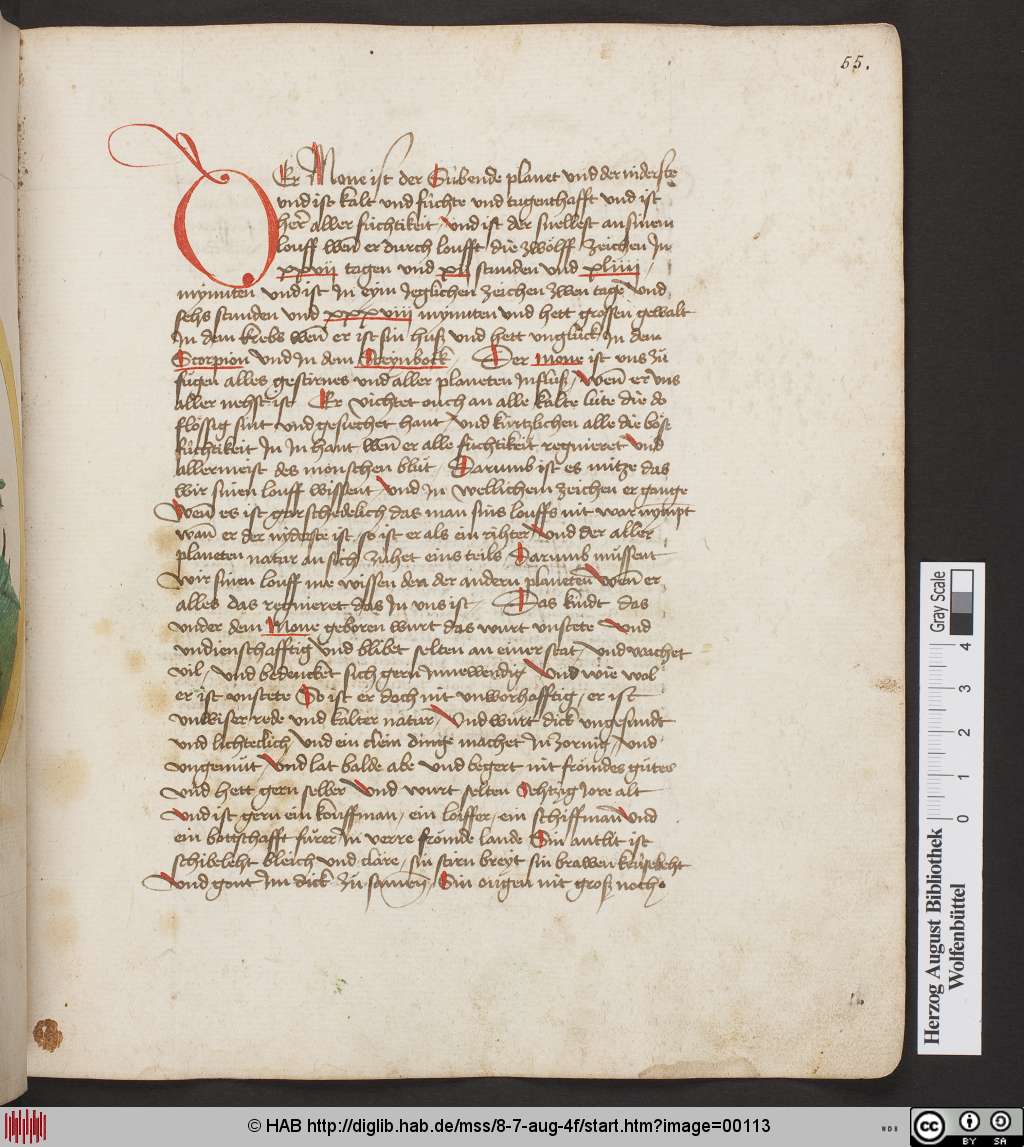 55.
DEr Mone ist der Sübende planet vnd der niderste
vnd ist kalt vnd füchte vnd tugenthafft vnd ist
her aller füchtikeit vnd ist der snellest an sinem
louff wen̄ er durch loufft die zwölff zeichen In
xxvii tagen vnd xii stunden vnd xliiii
mynuten vnd ist In eym Jeglichen zeichen zwen tage vnd
sehs stunden vnd xxxviii mynuten vnd hett grossen gewalt
In dem krebs wen̄ er ist sin huß vnd hett vnglück In dem
Scorpion vnd In dem Steynbock Der mone ist vns zů
fügen alles gestirnes vnd aller planeten Influß wen̄ er vns
aller nehst ist Er richtet ouch an alle kalte lüte die do
flössig sint vnd gesüchet hant vnd kürtzlichen alle die böse
füchtikeit In In hant wen̄ er alle füchtikeit regnieret vnd
allermeist des mönschen blůt Darumb ist es nütze das
wir sinen louff wissent vnd In wellichem zeichen er gange
Wen̄ es ist gar schedelich das man sins louffs nit war nympt
wan̄ er der nyderste ist so ist er als ein rihter vnd der aller
planeten natur an sich zühet eins teils Darumb müssent
wir sinen louff me wissen den der andern planeten̄ wen̄ er
alles das regnieret das In vns ist Das kindt das
vnder dem Mone geboren wurt das wurt vnstete vnd
vndienschafftig vnd blibet selten an einer stat vnd wachet
vil vnd bedencket sich gern Innewendig vnd wie wol
er ist vnstete So ist er doch nit vnworhafftig er ist
vnwiser rede vnd kalter natur Vnd wurt dick vngesundt
vnd lichteclich vnd ein clein dinge machet In zornig vnd
vngemüt vnd lat balde abe vnd begert nit frömdes gůtes
vnd hett gern selber vnd wurt selten Sehtzig Jore alt
vnd ist gern ein kouffman ein loiffer ein schiffman̄ vnd
ein bottschafft fürer In verre frömde lande Sin antlit ist
schibeleht bleich vnd clare sin stirn breyt sin brawen krüseleht
vnd gont Im dick zů samen Sin ougen nit groß noch
Herzog August Bibliothek
Wolfenbüttel
0 1 2 3 4
Gray Scale
© HAB http://diglib.hab.de/mss/8-7-aug-4f/start.htm?image=00113
WDB
cc BY SA